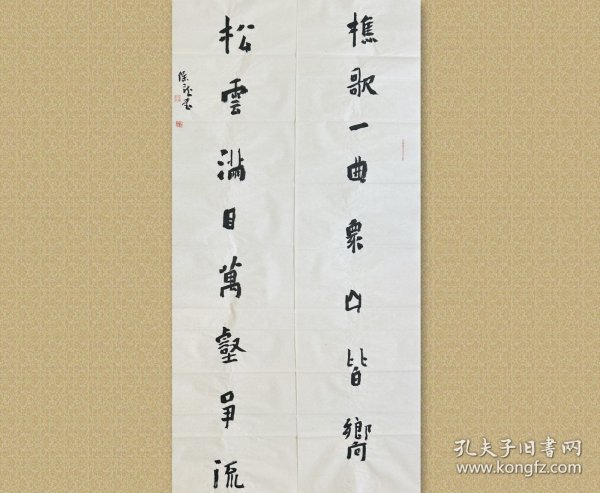 樵歌一曲衆山皆嚮
松雲滿目萬壑爭流
孔夫子旧书网
www.kongfz.com